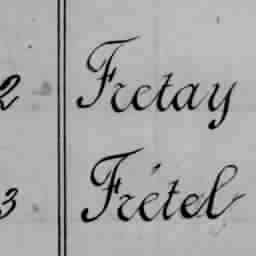 2 Fretay
3 Frétel